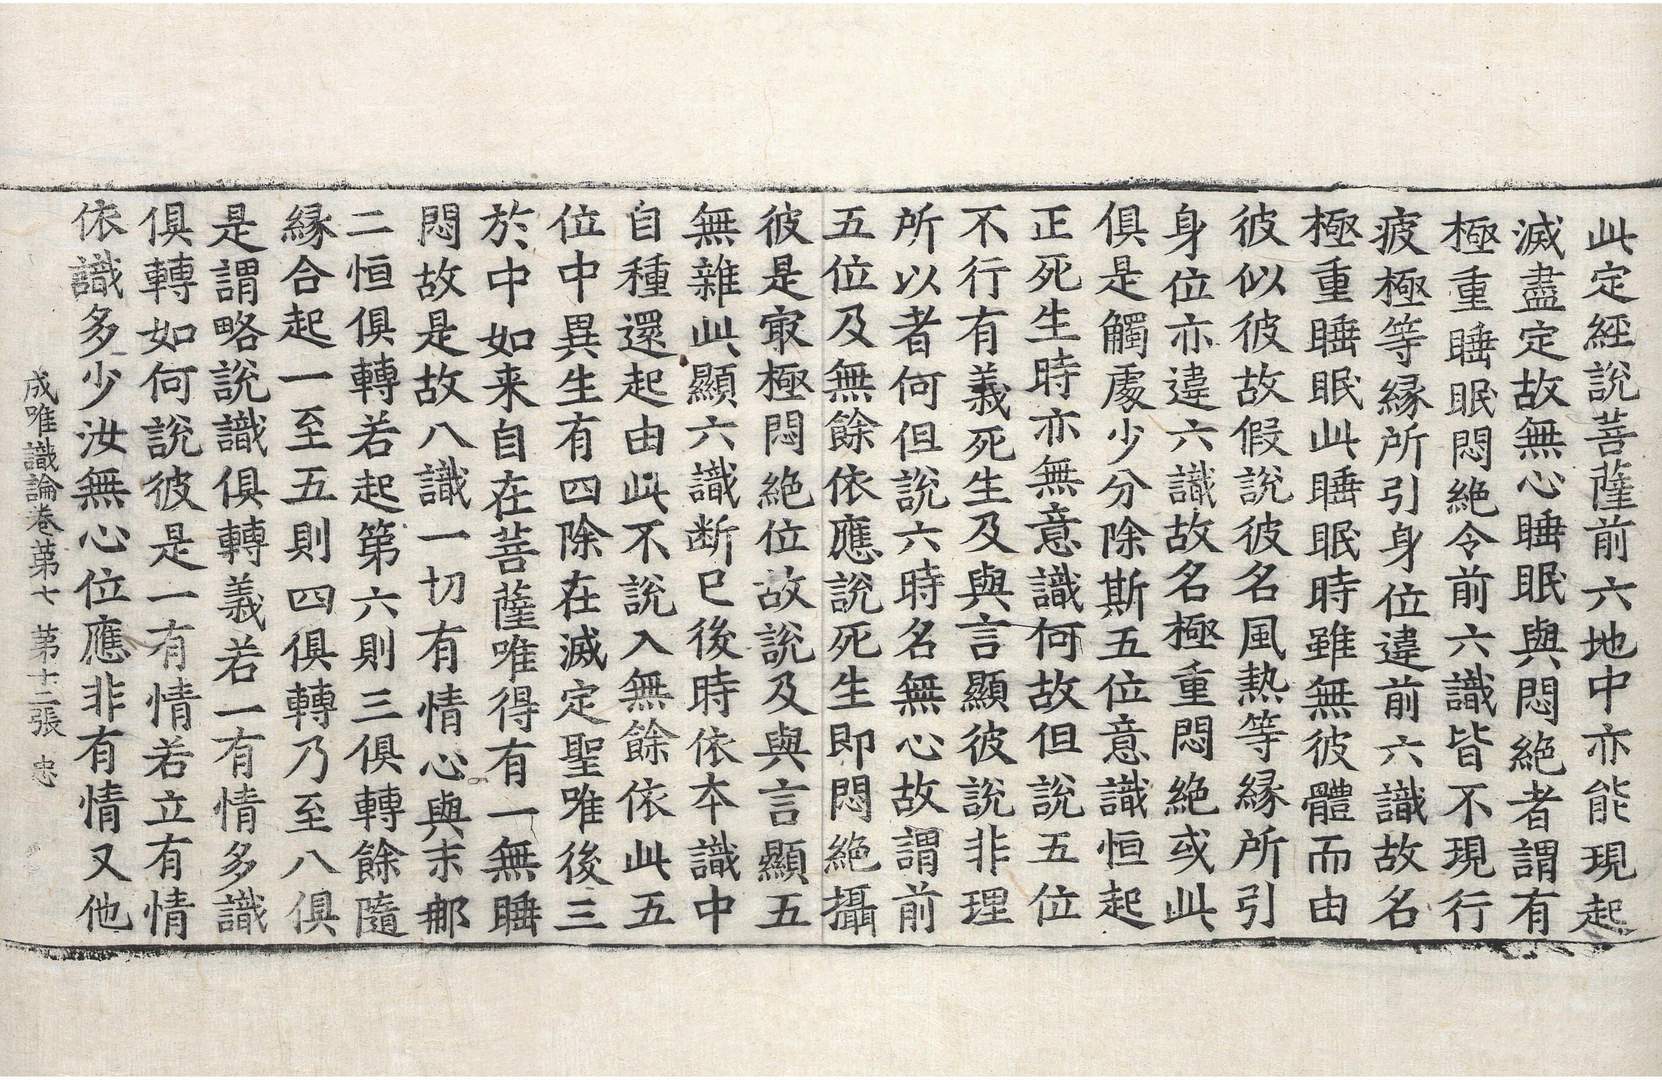 此定經說菩薩前六地中亦能現起
滅盡定故無心睡眠與悶絕者謂有
極重睡眠悶絕令前六識皆不現行
疲極等緣所引身位違前六識故名
極重睡眠此睡眠時雖無彼體而由
彼似彼故假說彼名風熱等緣所引
身位亦違六識故名極重悶絕或此
俱是觸處少分除斯五位意識恒起
正死生時亦無意識何故但說五位
不行有義死生及與言顯彼說非理
所以者何但說六時名無心故謂前
五位及無餘依應說死生即悶絕攝
彼是㝡極悶絕位故說及與言顯五
無雜此顯六識断已後時依本識中
自種還起由此不說入無餘依此五
位中異生有四除在滅定聖唯後三
於中如来自在菩薩唯得有一無睡
悶故是故八識一切有情心與末那
二恒俱轉若起第六則三俱轉餘隨
緣合起一至五則四俱轉乃至八俱
是謂略說識俱轉義若一有情多識
俱轉如何說彼是一有情若立有情
依識多少汝無心位應非有情又他
成唯識論卷第七 第十二張 忠